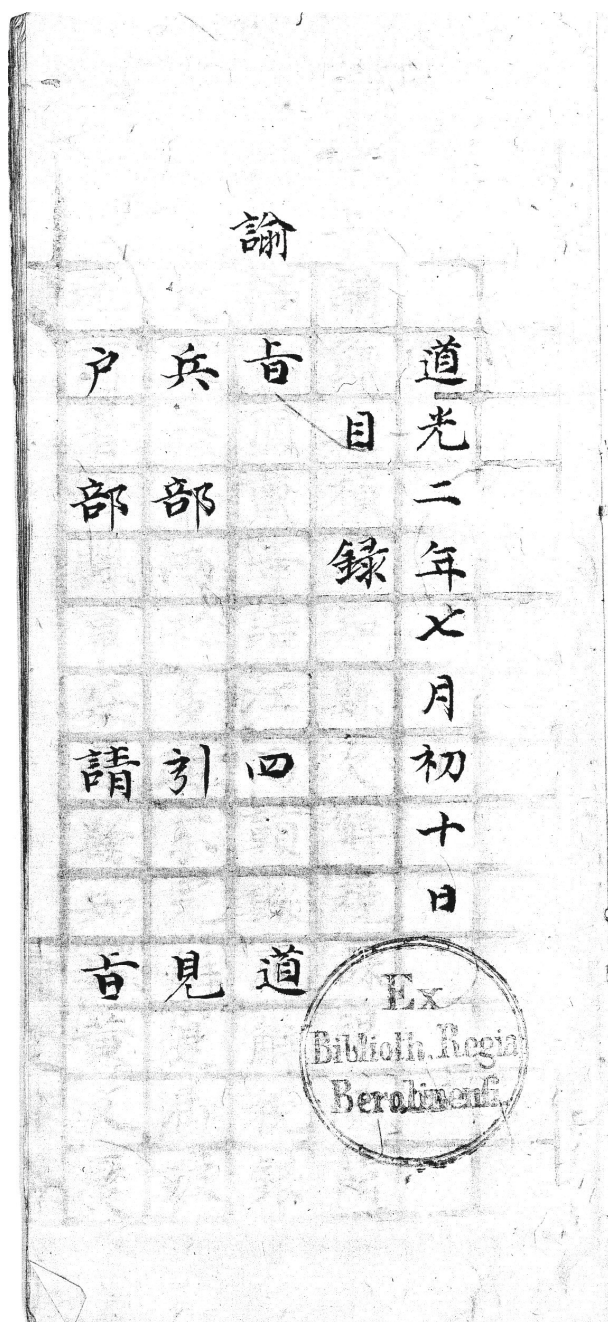 道光二年七月初十日
目録
諭旨 四道
兵部 引見
户部 請旨
Ex
Biblioth. Regia
Berolinenſi.